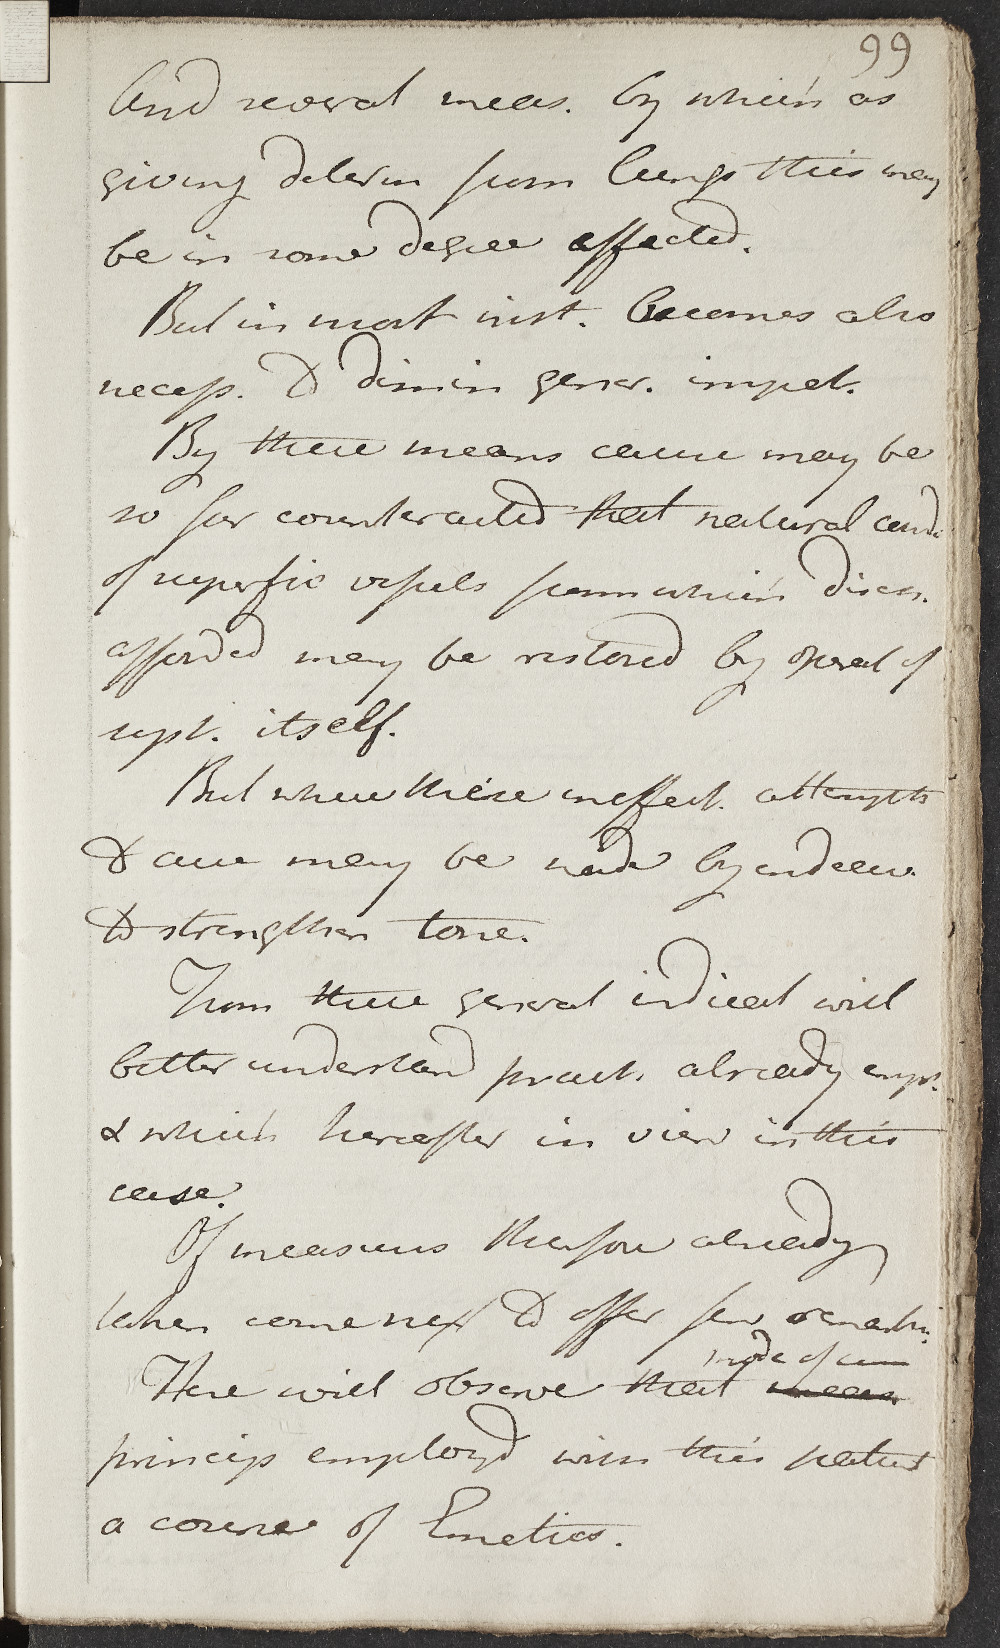 99
And several meas. by which as
giving determ from lungs this may
be in some degree affected.
But in most inst. becomes also
necess. to dimin gener. impet.
By these means cause may be
so far counteracted that natural cond.
of superfic vessels from which disch.
afforded may be restored by operat of
syst. itself.
But where these ineffect. attempts
to cure may be made by endeav.
to strengthen tone.
From these general indicat will
better understand pract. already empl.
& which hereafter in view in this
case.
Of measures therefore already
taken come next to offer few remarks.
mode of cure
Here will observe that means
princip employd with this patient
a course of Emetics.